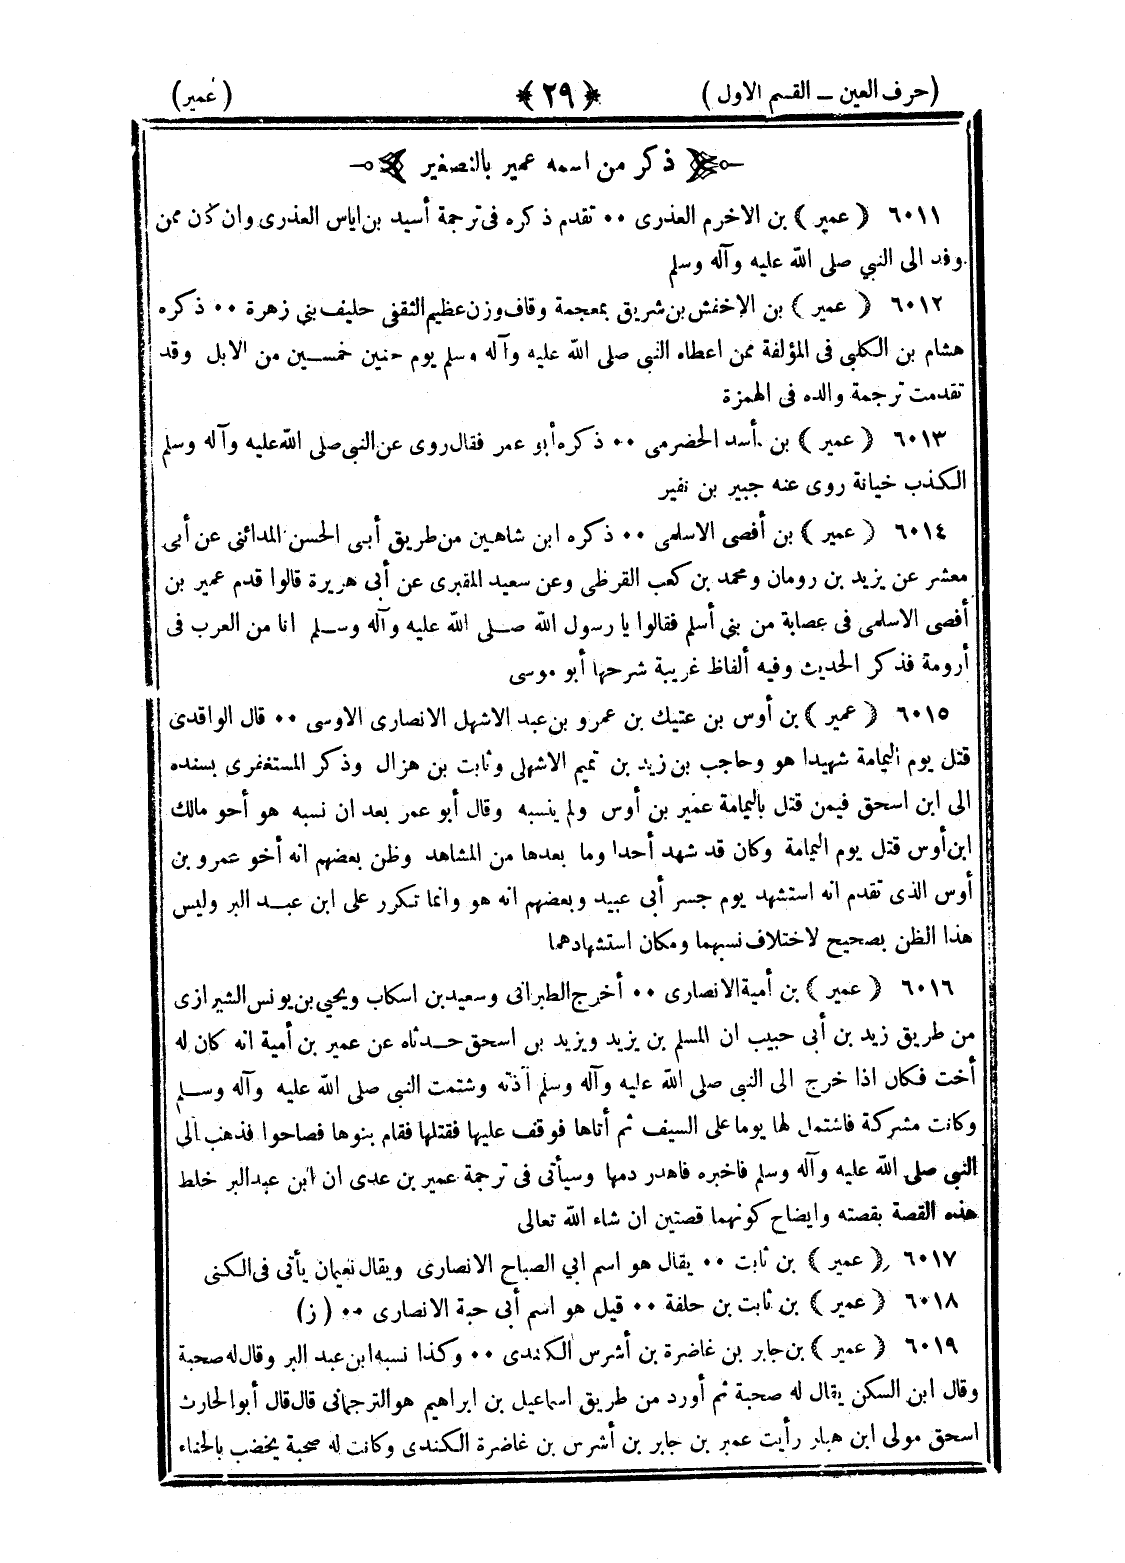 (حرف العين ــ القسم الاول) ﴿ ٢٩ ﴾ (عمير)
ذكر من اسمه عمير بالتصغير
٦٠١١ ( عمير ) بن الاخرم العذرى ٠٠ تقدم ذكره فى ترجمة أسيد بن اياس العذرى وان كان ممن
وفد الى النبي صلى الله عليه وآله وسلم
٦٠١٢ ( عمير ) بن الاخنش بن شريق بمعجمة وقاف وزن عظيم الثقفى حليف بني زهرة ٠٠ ذكره
هشام بن الكلبي فى المؤلفة ممن اعطاه النبي صلى الله عليه وآله وسلم يوم حنين خمسين من الابل وقد
تقدمت ترجمة والده فى الهمزة
٦٠١٣ ( عمير ) بن أسد الحضرمى ٠٠ ذكره أبو عمر فقال روى عن النبي صلى الله عليه وآله وسلم
الكذب خيانة روى عنه جبير بن نفير
٦٠١٤ ( عمير ) بن أفصى الاسلمى ٠٠ ذكره ابن شاهين من طريق أبى الحسن المدائنى عن أبى
معشر عن يزيد بن رومان ومحمد بن كعب القرظى وعن سعيد المقبرى عن أبى هريرة قالوا قدم عمير بن
أفصى الاسلمى فى عصابة من بني أسلم فقالوا يا رسول الله صلى الله عليه وآله وسلم انا من العرب فى
أرومة فذكر الحديث وفيه ألفاظ غريبة شرحها أبو موسى
٦٠١٥ ( عمير ) بن أوس بن عتيك بن عمرو بن عبد الاشهل الانصارى الاوسى ٠٠ قال الواقدى
قتل يوم اليمامة شهيدا هو وحاجب بن زيد بن تميم الاشهلى وثابت بن هزال وذكر المستغفرى بسنده
الى ابن اسحق فيمن قتل باليمامة عمير بن أوس ولم ينسبه وقال أبو عمر بعد ان نسبه هو أحو مالك
ابن أوس قتل يوم اليمامة وكان قد شهد أحدا وما بعدها من المشاهد وظن بعضهم انه أخو عمرو بن
أوس الذى تقدم انه استشهد يوم جسر أبى عبيد وبعضهم انه هو وانما تكرر على ابن عبد البر وليس
هذا الظن بصحيح لاختلاف نسبهما ومكان استشهادهما
٦٠١٦ ( عمير ) بن أمية الانصارى ٠٠ أخرج الطبرانى وسعيد بن اسكاب ويحيى بن يونس الشيرازى
من طريق زيد بن أبى حبيب ان المسلم بن يزيد ويزيد بن اسحق حدثاه عن عمير بن أمية انه كان له
أخت فكان اذا خرج الى النبي صلى الله عليه وآله وسلم آذته وشتمت النبي صلى الله عليه وآله وسلم
وكانت مشركة فاشتمل لها يوما على السيف ثم أتاها فوقف عليها فقتلها فقام بنوها فصاحوا فذهب الى
النبي صلى الله عليه وآله وسلم فاخبره فاهدر دمها وسيأتى فى ترجمة عمير بن عدى ان ابن عبد البر خلط
هذه القصة بقصته وايضاح كونهما قصتين ان شاء الله تعالى
٦٠١٧ ( عمير ) بن ثابت ٠٠ يقال هو اسم ابي الصباح الانصارى ويقال نعيمان يأتى فى الكنى
٦٠١٨ ( عمير ) بن ثابت بن حلفة ٠٠ قيل هو اسم أبى حبة الانصارى ٠٠ ( ز )
٦٠١٩ ( عمير ) بن جابر بن غاضرة بن أشرس الكندى ٠٠ وكذا نسبه ابن عبد البر وقال له صحبة
وقال ابن السكن يقال له صحبة ثم أورد من طريق اسماعيل بن ابراهيم هو الترجمانى قال قال أبو الحارث
اسحق مولى ابن هبار رأيت عمير بن جابر بن أشرس بن غاضرة الكندى وكانت له صحبة يخضب بالحناء